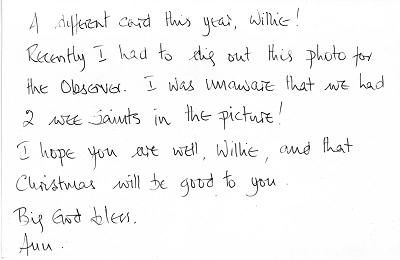 A different card this year, Willie!
Recently I had to dig out this photo for
the Observer. I was unaware that we had
2 wee saints in the picture!
I hope you are well, Willie, and that
Christmas will be good to you.
Big God bless.
Ann.